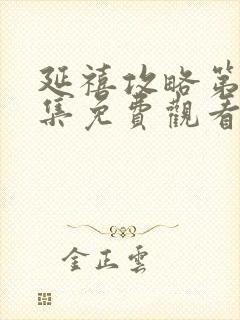 延禧攻略第
集免費觀看
金正雲